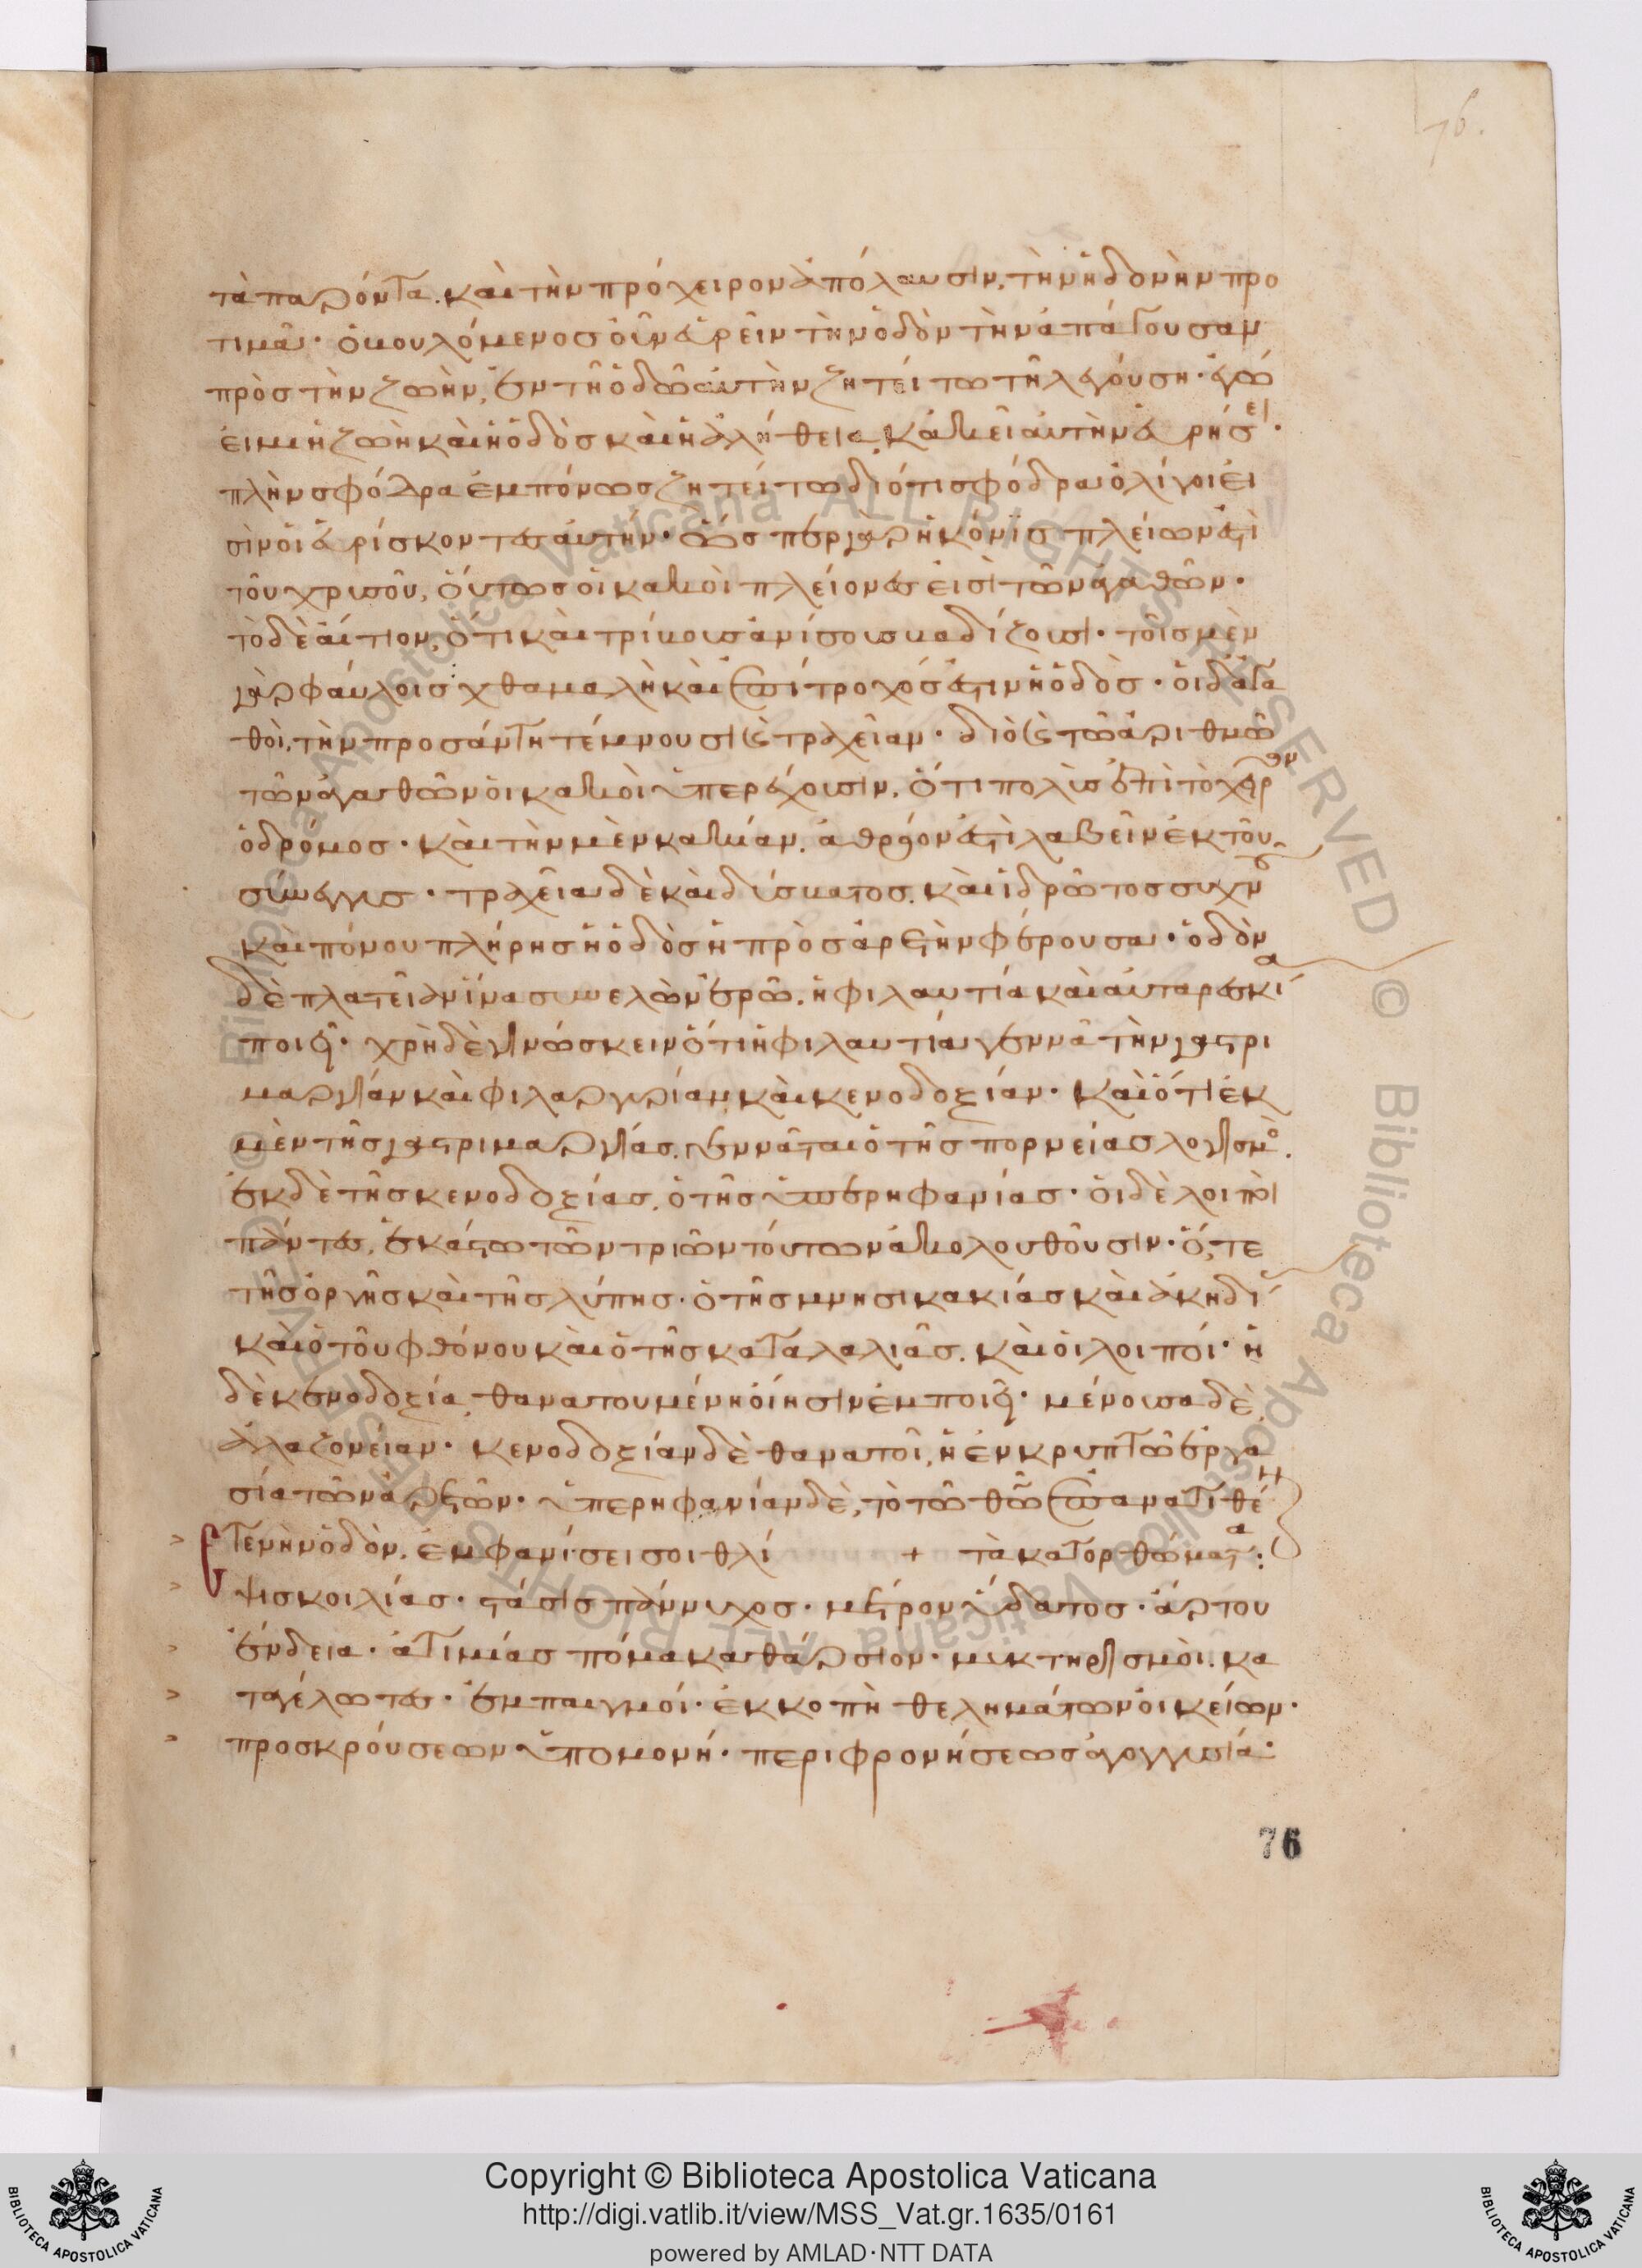 76.
τὰ παρόντα. καὶ τὴν πρόχειρον ἀπόλαυσιν, τὴν ἡδονὴν προ
τιμᾶν· ὁ βουλόμενος οὖν εὑρεῖν τὴν ὁδὸν τὴν ἀπάγουσαν
πρὸς τὴν ζωὴν, ἐν τῆ ὁδῶ αὐτὴν ζητείτω τῆ λεγούση· ἐγώ
εἰμι ἡ ζωὴ καὶ ἡ ὁδὸς καὶ ἡ ἀλήθεια. κἀκεῖ αὐτὴν εὑρήσει·
πλὴν σφόδρα ἐμπόνως ζητείτω διότι σφόδρα ὀλίγοι εἰ
σὶν οἱ εὑρίσκοντες αὐτήν· ὥσπερ γὰρ ἡ κόνις πλείων ἐστὶ
τοῦ χρυσοῦ, οὕτως οἱ κακοὶ πλείονες εἰσὶ τῶν ἀγαθῶν·
τὸ δὲ αἴτιον, ὅτι καὶ τρίβους ἀνίσους βαδίζουσι· τοῖς μὲν
γὰρ φαύλοις χθαμαλὴ καὶ ἐπίτροχός ἐστιν ἡ ὁδὸς· οἱ δ' ἀγα
θοὶ, τὴν προσάντη τέμνουσι καὶ τραχεῖαν· διὸ καὶ τῶ ἀριθμῶ
τῶν ἀγαθῶν οἱ κακοὶ ὑπερέχουσιν, ὅτι πολὺς ἐπὶ τὸ χεῖρον
ὁ δρόμος· καὶ τὴν μὲν κακίαν, ἀθρόον ἐστὶ λαβεῖν ἐκ τοῦ
σύνεγγυς· τραχεῖα δὲ καὶ δύσβατος, καὶ ἱδρῶτος συχνοῦ
καὶ πόνου πλήρης ἡ ὁδὸς ἡ πρὸς ἀρετὴν φέρουσα· ὁδὸν
δὲ πλατεῖαν ἵνα συνελὼν ἐρῶ, ἡ φιλαυτία καὶ αὐταρεσκία
ποιεῖ· χρὴ δὲ γινώσκειν ὅτι ἡ φιλαυτία γεννᾶ τὴν γαστρι
μαργίαν καὶ φιλαργυρίαν, καὶ κενοδοξίαν· καὶ ὅτι ἐκ
μὲν τῆς γαστριμαργίας, γεννᾶται ὁ τῆς πορνείας λογισμὸς.
ἐκ δὲ τῆς κενοδοξίας, ὁ τῆς ὑπερηφανίας· οἱ δὲ λοιποὶ
πάντες, ἑκάστω τῶν τριῶν τούτων ἀκολουθοῦσιν· ὅ, τε
τῆς ὀργῆς καὶ τῆς λύπης· ὁ τῆς μνησικακίας καὶ ἀκηδίας
καὶ ὁ τοῦ φθόνου καὶ ὁ τῆς καταλαλιᾶς, καὶ οἱ λοιποί· ἡ
δὲ κενοδοξία, θανατουμένη οἴησιν ἐμποιεῖ· μένουσα δὲ
ἀλαζονείαν· κενοδοξίαν δὲ θανατοῖ, ἡ ἐν κρυπτῶ ἐργα
σία τῶν ἀρετῶν· ὑπερηφανίαν δὲ, τὸ τῶ θῶ ἐπανατιθέναι
τὰ κατορθώματα:
Στενὴν ὁδὸν, ἐμφανίσει σοι θλί
ψις κοιλίας· στάσις πάννυχος· μέτρον ὕδατος· ἄρτου
ἔνδεια· ἀτιμίας πόμα καθάρσιον· μυκτηρισμοὶ, κα
ταγέλωτες· ἐμπαιγμοί· ἐκκοπὴ θελημάτων οἰκείων·
προσκρούσεων ὑπομονή· περιφρονήσεως ἀγογγυσία·
76
Copyright © Biblioteca Apostolica Vaticana
http://digi.vatlib.it/view/MSS_Vat.gr.1635/0161
powered by AMLAD·NTT DATA